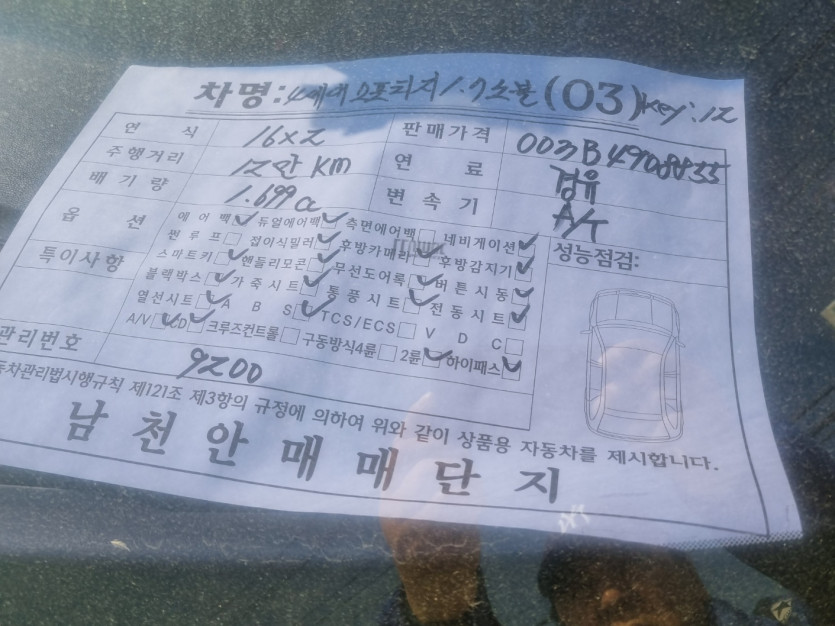 차명: 4세대 스포티지 1.7 노블 (03) Key: 12
연식 16x2 판매가격 003B4908855
주행거리 12만 KM 연료 경유
배기량 1.699cc 변속기 A/T
옵션 에어백 듀얼에어백 측면에어백 네비게이션 성능점검:
썬루프 접이식밀러 후방카메라 후방감지기
특이사항 스마트키 핸들리모콘 무선도어록 버튼시동
블랙박스 가죽시트 통풍시트 전동시트
열선시트 A B S TCS/ECS V D C
A/V CD 크루즈컨트롤 구동방식4륜 2륜 하이패스
관리번호 9200
동차관리법시행규칙 제121조 제3항의 규정에 의하여 위와 같이 상품용 자동차를 제시합니다.
남천안매매단지